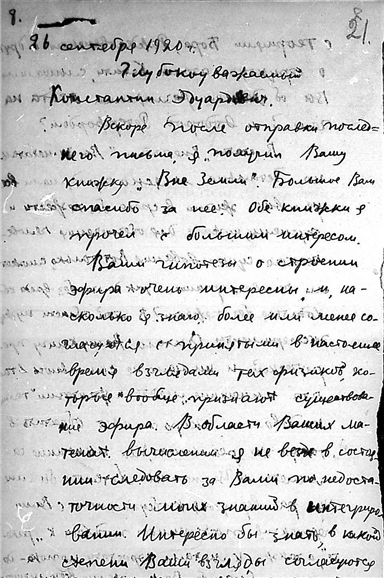 8.
21.
26 сентября 1920 г.
Глубокоуважаемый
Константин Эдуардович.
Вскоре после отправки послед-
него письма я получил Вашу
книжку "Вне Земли". Большое Вам
спасибо за нее. Обе книжки я
прочел с большим интересом.
Ваши гипотезы о строении
эфира очень интересны и, на-
сколько я знаю, более или менее со-
гласуются с принятыми в настоящее
время взглядами тех физиков, ко-
торые вообще признают существова-
ние эфира. В области Ваших ма-
темат. вычислений я не везде в состоя-
нии следовать за Вами по недоста-
точности моих знаний в интегриро-
вании. Интересно бы знать, в какой
степени Ваши взгляды согласуются